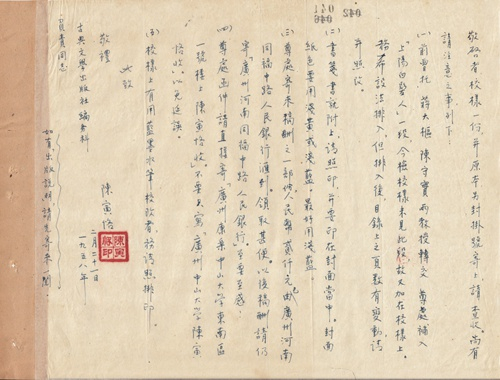 敬啟者校樣一份，并原本另封掛號寄上請查收。尚有
請注意之事列下：
(一) 前曾托 蔣天樞 陳守實兩教授轉交 尊處補入
「上陽白髮人」一段，今檢校樣未見此段，故又加在校樣上。
務希設法排入，但排入後，目錄上之頁數有變動，請
并照改。
(二) 箋證書說附上，請照印，并要印在封面當中。封面
紙色要用淺黃或淺藍，最好用淺藍。
(三) 尊處寄來稿酬之一部份人民幣貳仟元，由廣州河南
同福中路人民銀行滙到，領取甚便。以後稿酬請仍
寄廣州河南同福中路人民銀行，至要至感。
(四) 尊處函件請直接寄「廣州康樂中山大學東南區
一號樓上陳寅恪收」，不要只寫「廣州中山大學陳寅
恪收」，以免延誤。
(五) 校樣上有用藍墨水筆校改者，務請照排印。
此致
敬禮
陳寅恪
二月二十一日
一九五八年
古典文學出版社編審科
負責同志
如有出版說明，請先寄來一閱。